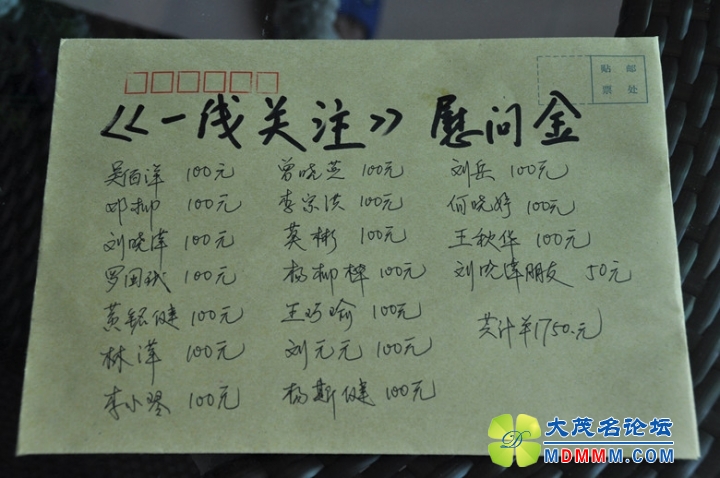 贴 邮
票 处
《一线关注》慰问金
吴百洋 100元 曾晓燕 100元 刘兵 100元
邓柳 100元 李宗洪 100元 何晓婷 100元
刘晓洋 100元 莫彬 100元 王秋华 100元
罗国斌 100元 杨柳桦 100元 刘晓洋朋友 50元
黄铭健 100元 王巧瑜 100元 共计¥1750.元
林洋 100元 刘元元 100元
李小琴 100元 杨斯健 100元
大茂名论坛
MDMMM.COM